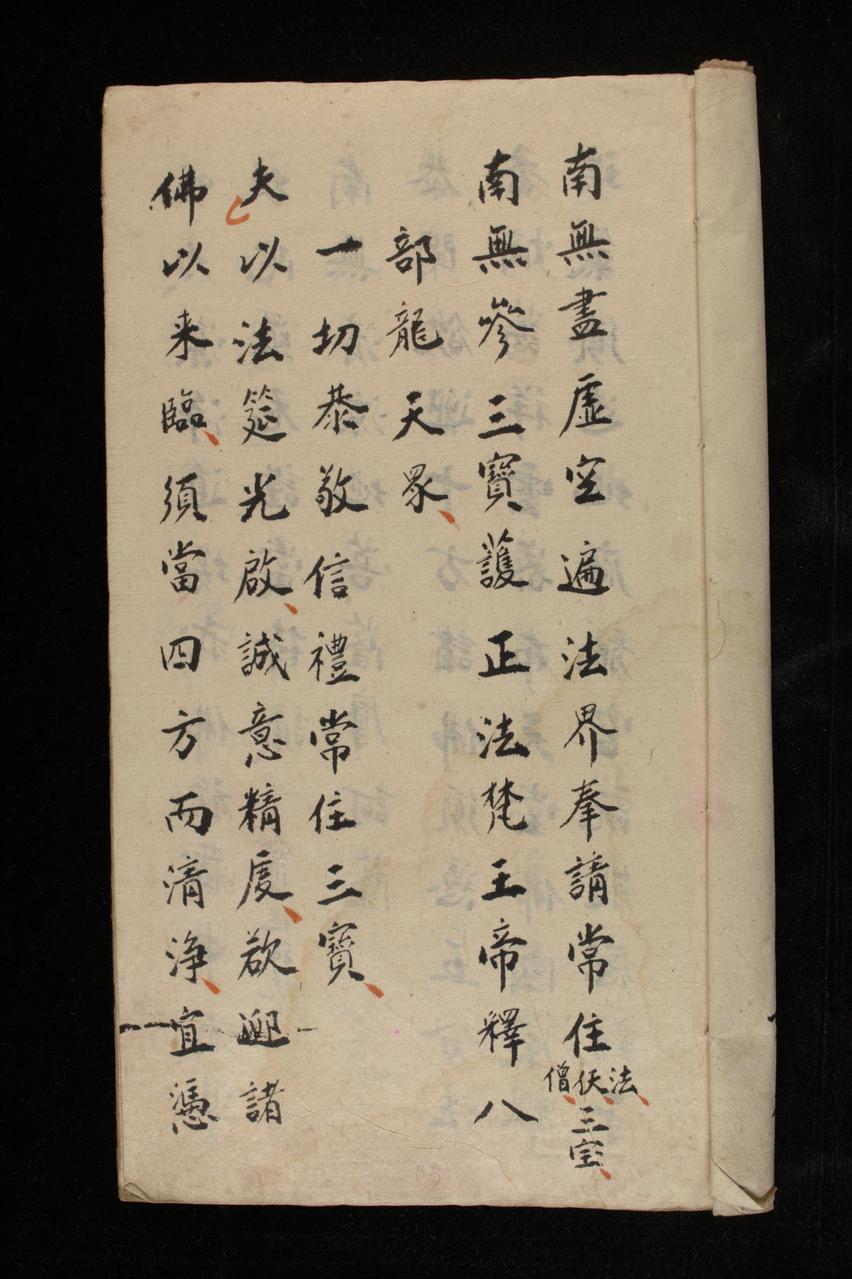 南無盡虛空遍法界奉請常住法仸僧三宝
南無參三寶護正法梵王帝釋八
部龍天眾
一切恭敬信禮常住三寶
夫以法筵光啟誠意精虔欲迎諸
佛以来臨須當四方而清淨宜憑